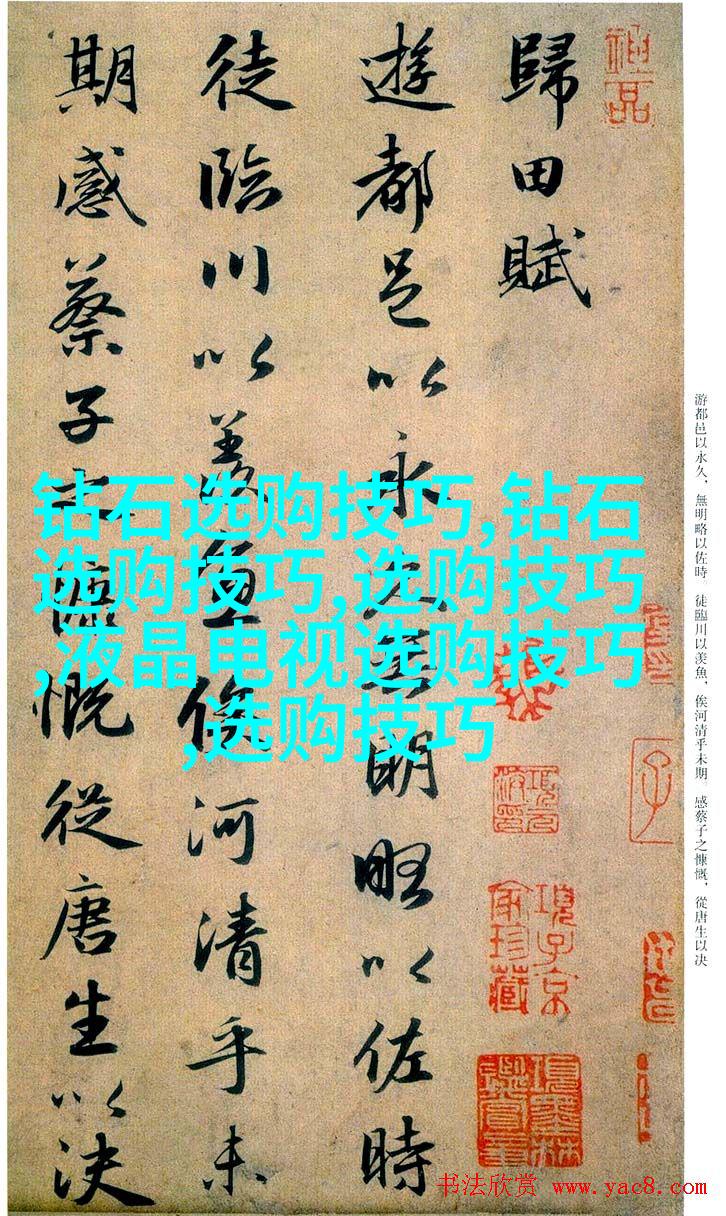 游都邑以永久，無明略以佐時。徒臨川以羨魚，俟河清乎未期。感蔡子之慷慨，從唐生以決
歸田賦
遊都邑以永久無明略以佐時
徒臨川以羨魚俟河清乎未
期感蔡子之慷慨從唐生以決
钻石选购技巧,钻石
选购技巧,选购技巧
,液晶电视选购技巧
,选购技巧
神品
項子京家珍藏
項墨林鑒賞章
书法欣赏 www.yac8.com